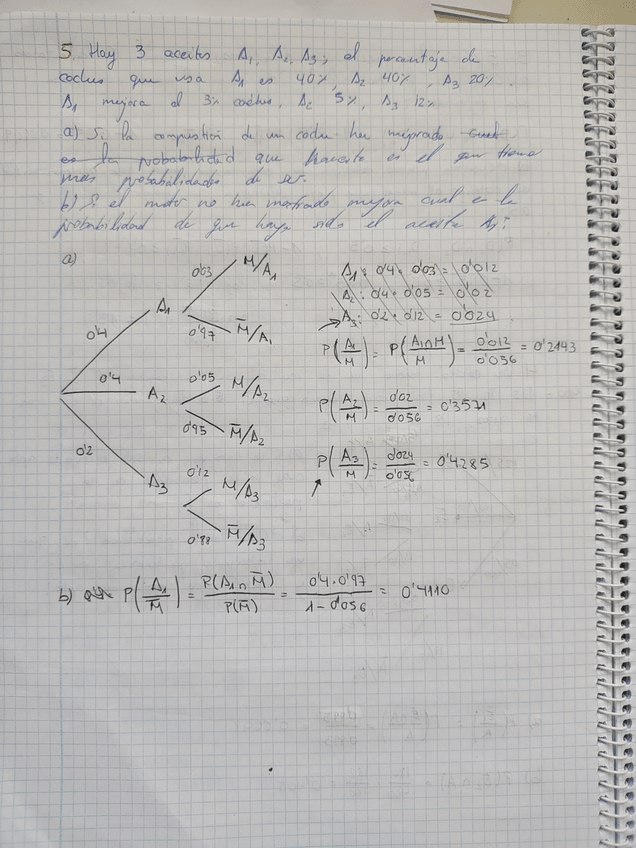 5. Hay 3 aceites A₁, A₂, A₃, el porcentaje de
coches que usa A₁ es 40%, A₂ 40%, A₃ 20%.
A₁ mejora al 3% coches, A₂ 5%, A₃ 12%
a) Si la compustión de un coche ha mejorado cual
es la probabilidad que aceite es el que tiene
mas probabilidades de ser.
b) Si el motor no ha mostrado mejora cual es la
probabilidad de que haya sido el aceite A₁?
a)
0'4 A₁ 0'03 M/A₁
0'97 M̅/A₁
0'4 A₂ 0'05 M/A₂
0'95 M̅/A₂
0'2 A₃ 0'12 M/A₃
0'88 M̅/A₃
A₁: 0'4 · 0'03 = 0'012
A₂: 0'4 · 0'05 = 0'02
→ A₃: 0'2 · 0'12 = 0'024
P(A₁/M) = P(A₁∩M/M) = 0'012/0'056 = 0'2143
P(A₂/M) = 0'02/0'056 = 0'3571
P(A₃/M) = 0'024/0'056 = 0'4285
b) P(A₁/M̅) = P(A₁∩M̅)/P(M̅) = 0'4·0'97/1-0'056 = 0'4110